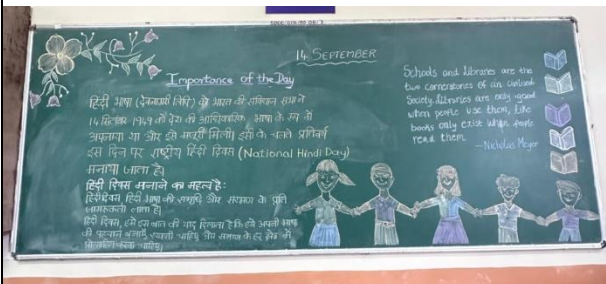 14 SEPTEMBER
Importance of the Day
हिंदी भाषा (देवनागरी लिपि) को भारत की संविधान सभा ने
14 सितंबर 1949 को देश की आधिकारिक भाषा के रूप में
अपनाया था और इसे मान्यता मिली। इसी के चलते प्रतिवर्ष
इस दिन पर राष्ट्रीय हिंदी दिवस (National Hindi Day)
मनाया जाता है।
हिंदी दिवस मनाने का महत्व है:
हिंदी दिवस हिंदी भाषा की समृद्धि और सम्मान के प्रति
जागरूकता लाता है।
हिंदी दिवस, हमें इस बात की याद दिलाता है कि हमें अपनी भाषा
की पहचान बनाए रखनी चाहिए और समाज के हर क्षेत्र में
चाहिए।
Schools and Libraries are the
two Cornerstones of an Civilised
Society. Libraries are only good
when people use them, Like
books only exist when people
read them
-Nicholas Meyer